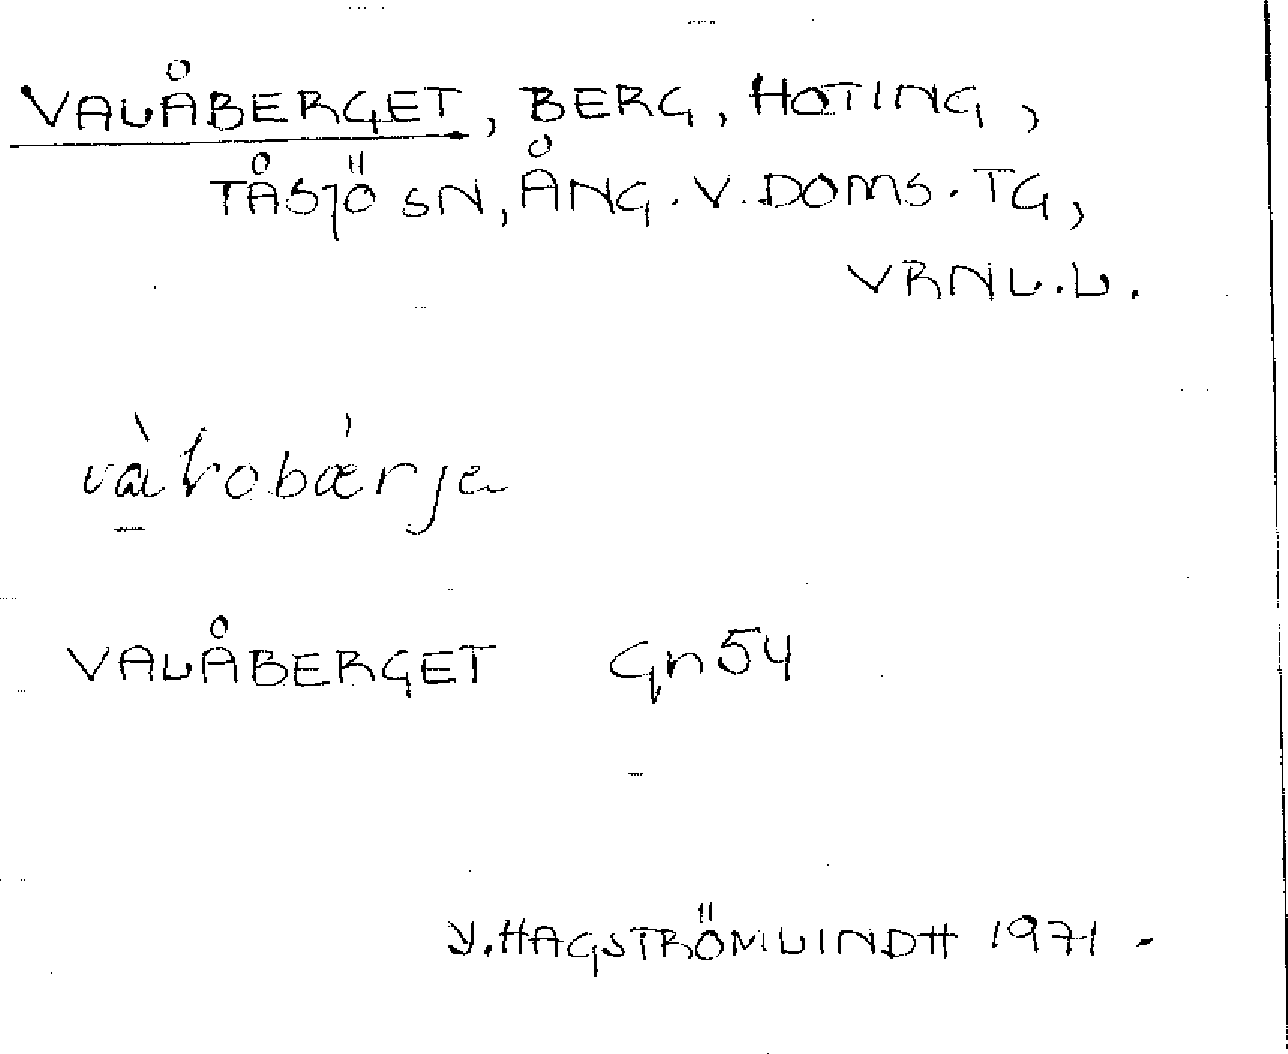 VALÅBERGET, BERG, HOTING,
TÅSJÖ SN, ÅNG. V. DOMS. TG,
VRNL.L.
VALÅBERGET Gn54
Y. HAGSTRÖMLINDH 1971 -